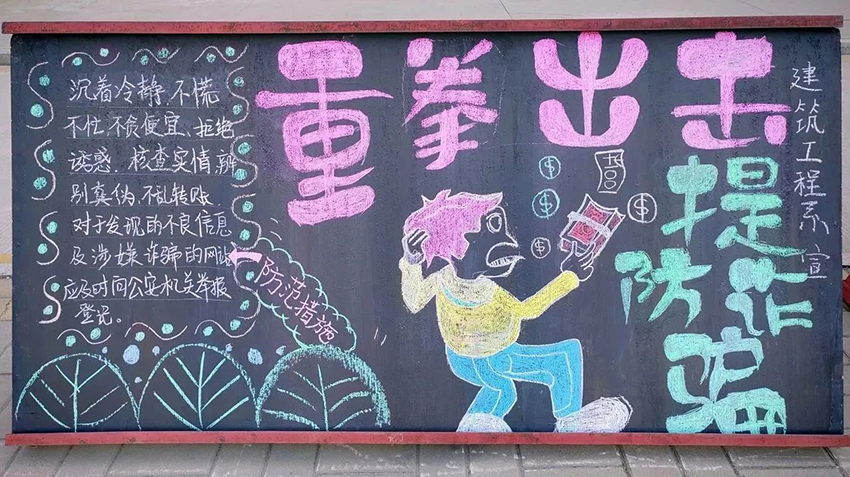 重拳出击
提防诈骗
建筑工程系 宣
沉着冷静、不慌
不忙、不贪便宜、拒绝
诱惑、核查实情、辨
别真伪、不乱转账、
对于发现的不良信息
及涉嫌诈骗的网站
应及时向公安机关举报
登记。
防范措施
$
$
$
$